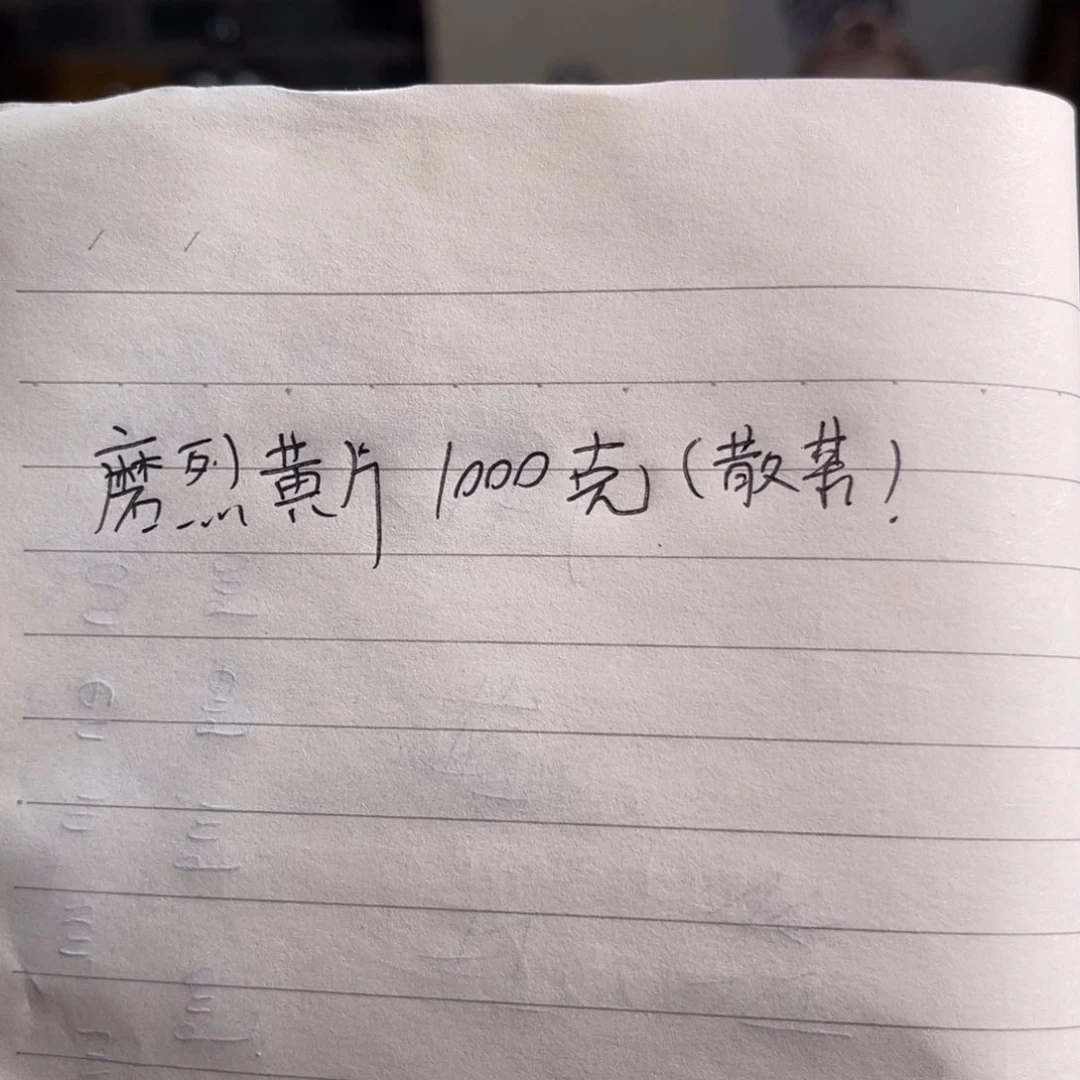 磨烈黄片 1000克(散茶)